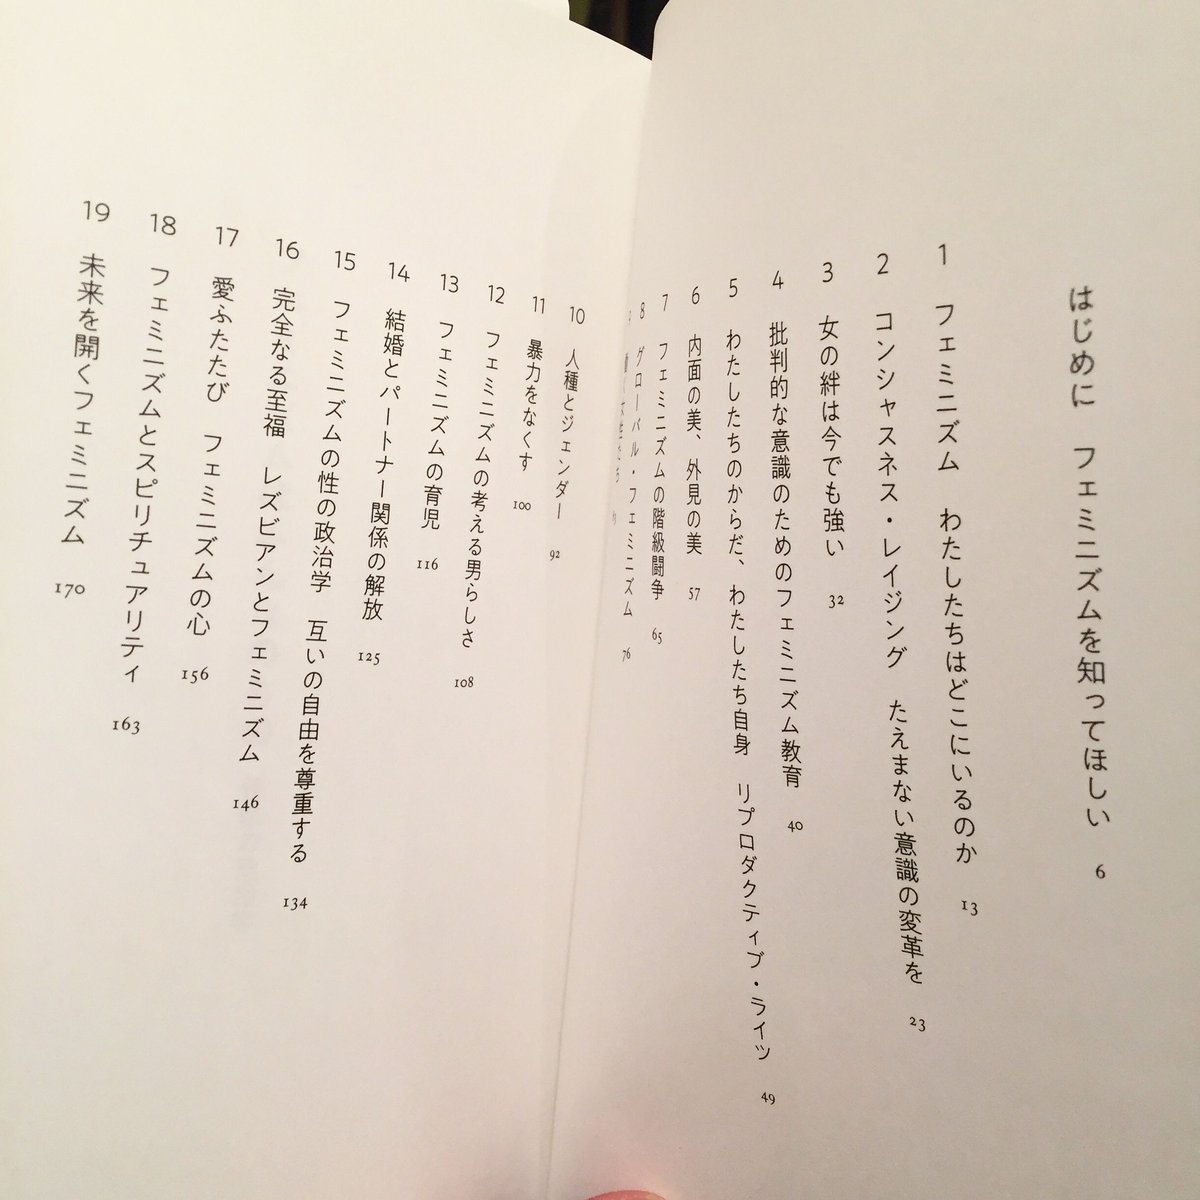 はじめに　フェミニズムを知ってほしい　6
1　フェミニズム　わたしたちはどこにいるのか　13
2　コンシャスネス・レイジング　たえまない意識の変革を　23
3　女の絆は今でも強い　32
4　批判的な意識のためのフェミニズム教育　40
5　わたしたちのからだ、わたしたち自身　リプロダクティブ・ライツ　49
6　内面の美、外見の美　57
7　フェミニズムの階級闘争　65
8　グローバル・フェミニズム　76
10　人種とジェンダー　92
11　暴力をなくす　100
12　フェミニズムの考える男らしさ　108
13　フェミニズムの育児　116
14　結婚とパートナー関係の解放　125
15　フェミニズムの性の政治学　互いの自由を尊重する　134
16　完全なる至福　レズビアンとフェミニズム　146
17　愛ふたたび　フェミニズムの心　156
18　フェミニズムとスピリチュアリティ　163
19　未来を開くフェミニズム　170